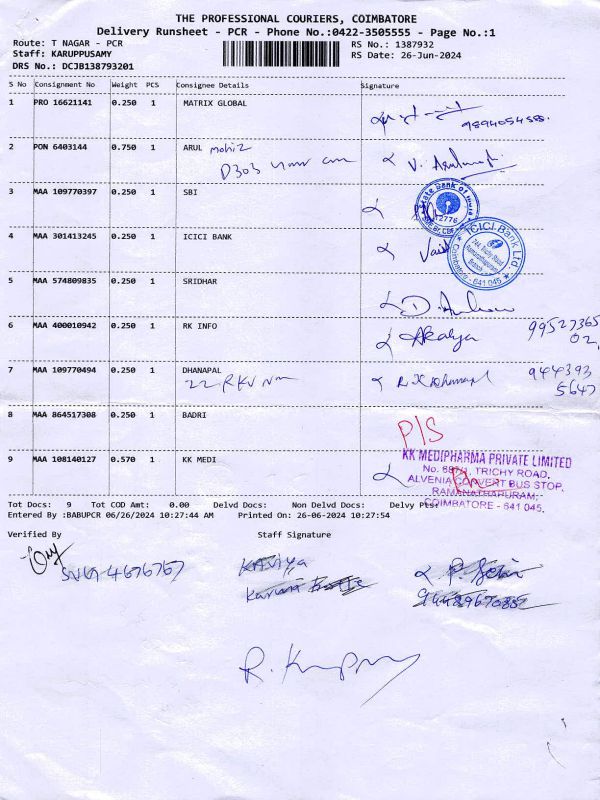 THE PROFESSIONAL COURIERS, COIMBATORE
Delivery Runsheet - PCR - Phone No.:0422-3505555 - Page No.:1
Route: T NAGAR - PCR RS No.: 1387932
Staff: KARUPPUSAMY RS Date: 26-Jun-2024
DRS No.: DCJB138793201
S No Consignment No Weight PCS Consignee Details Signature
1 PRO 16621141 0.250 1 MATRIX GLOBAL
2 PON 6403144 0.750 1 ARUL
D303
3 MAA 109770397 0.250 1 SBI
4 MAA 301413245 0.250 1 ICICI BANK
ICICI Bank Ltd.
Coimbatore - 641 045
5 MAA 574809835 0.250 1 SRIDHAR
6 MAA 400010942 0.250 1 RK INFO Akalya 99527365
02
7 MAA 109770494 0.250 1 DHANAPAL 944393
22 RKV 5647
8 MAA 864517308 0.250 1 BADRI
P/S
9 MAA 108140127 0.570 1 KK MEDI
KK MEDIPHARMA PRIVATE LIMITED
TRICHY ROAD,
ALVENIA CONVERT BUS STOP,
RAMANATHAPURAM,
COIMBATORE - 641 045.
Tot Docs: 9 Tot COD Amt: 0.00 Delvd Docs: Non Delvd Docs: Delvy Pts:
Entered By :BABUPCR 06/26/2024 10:27:44 AM Printed On: 26-06-2024 10:27:54
Verified By Staff Signature
Kaviya